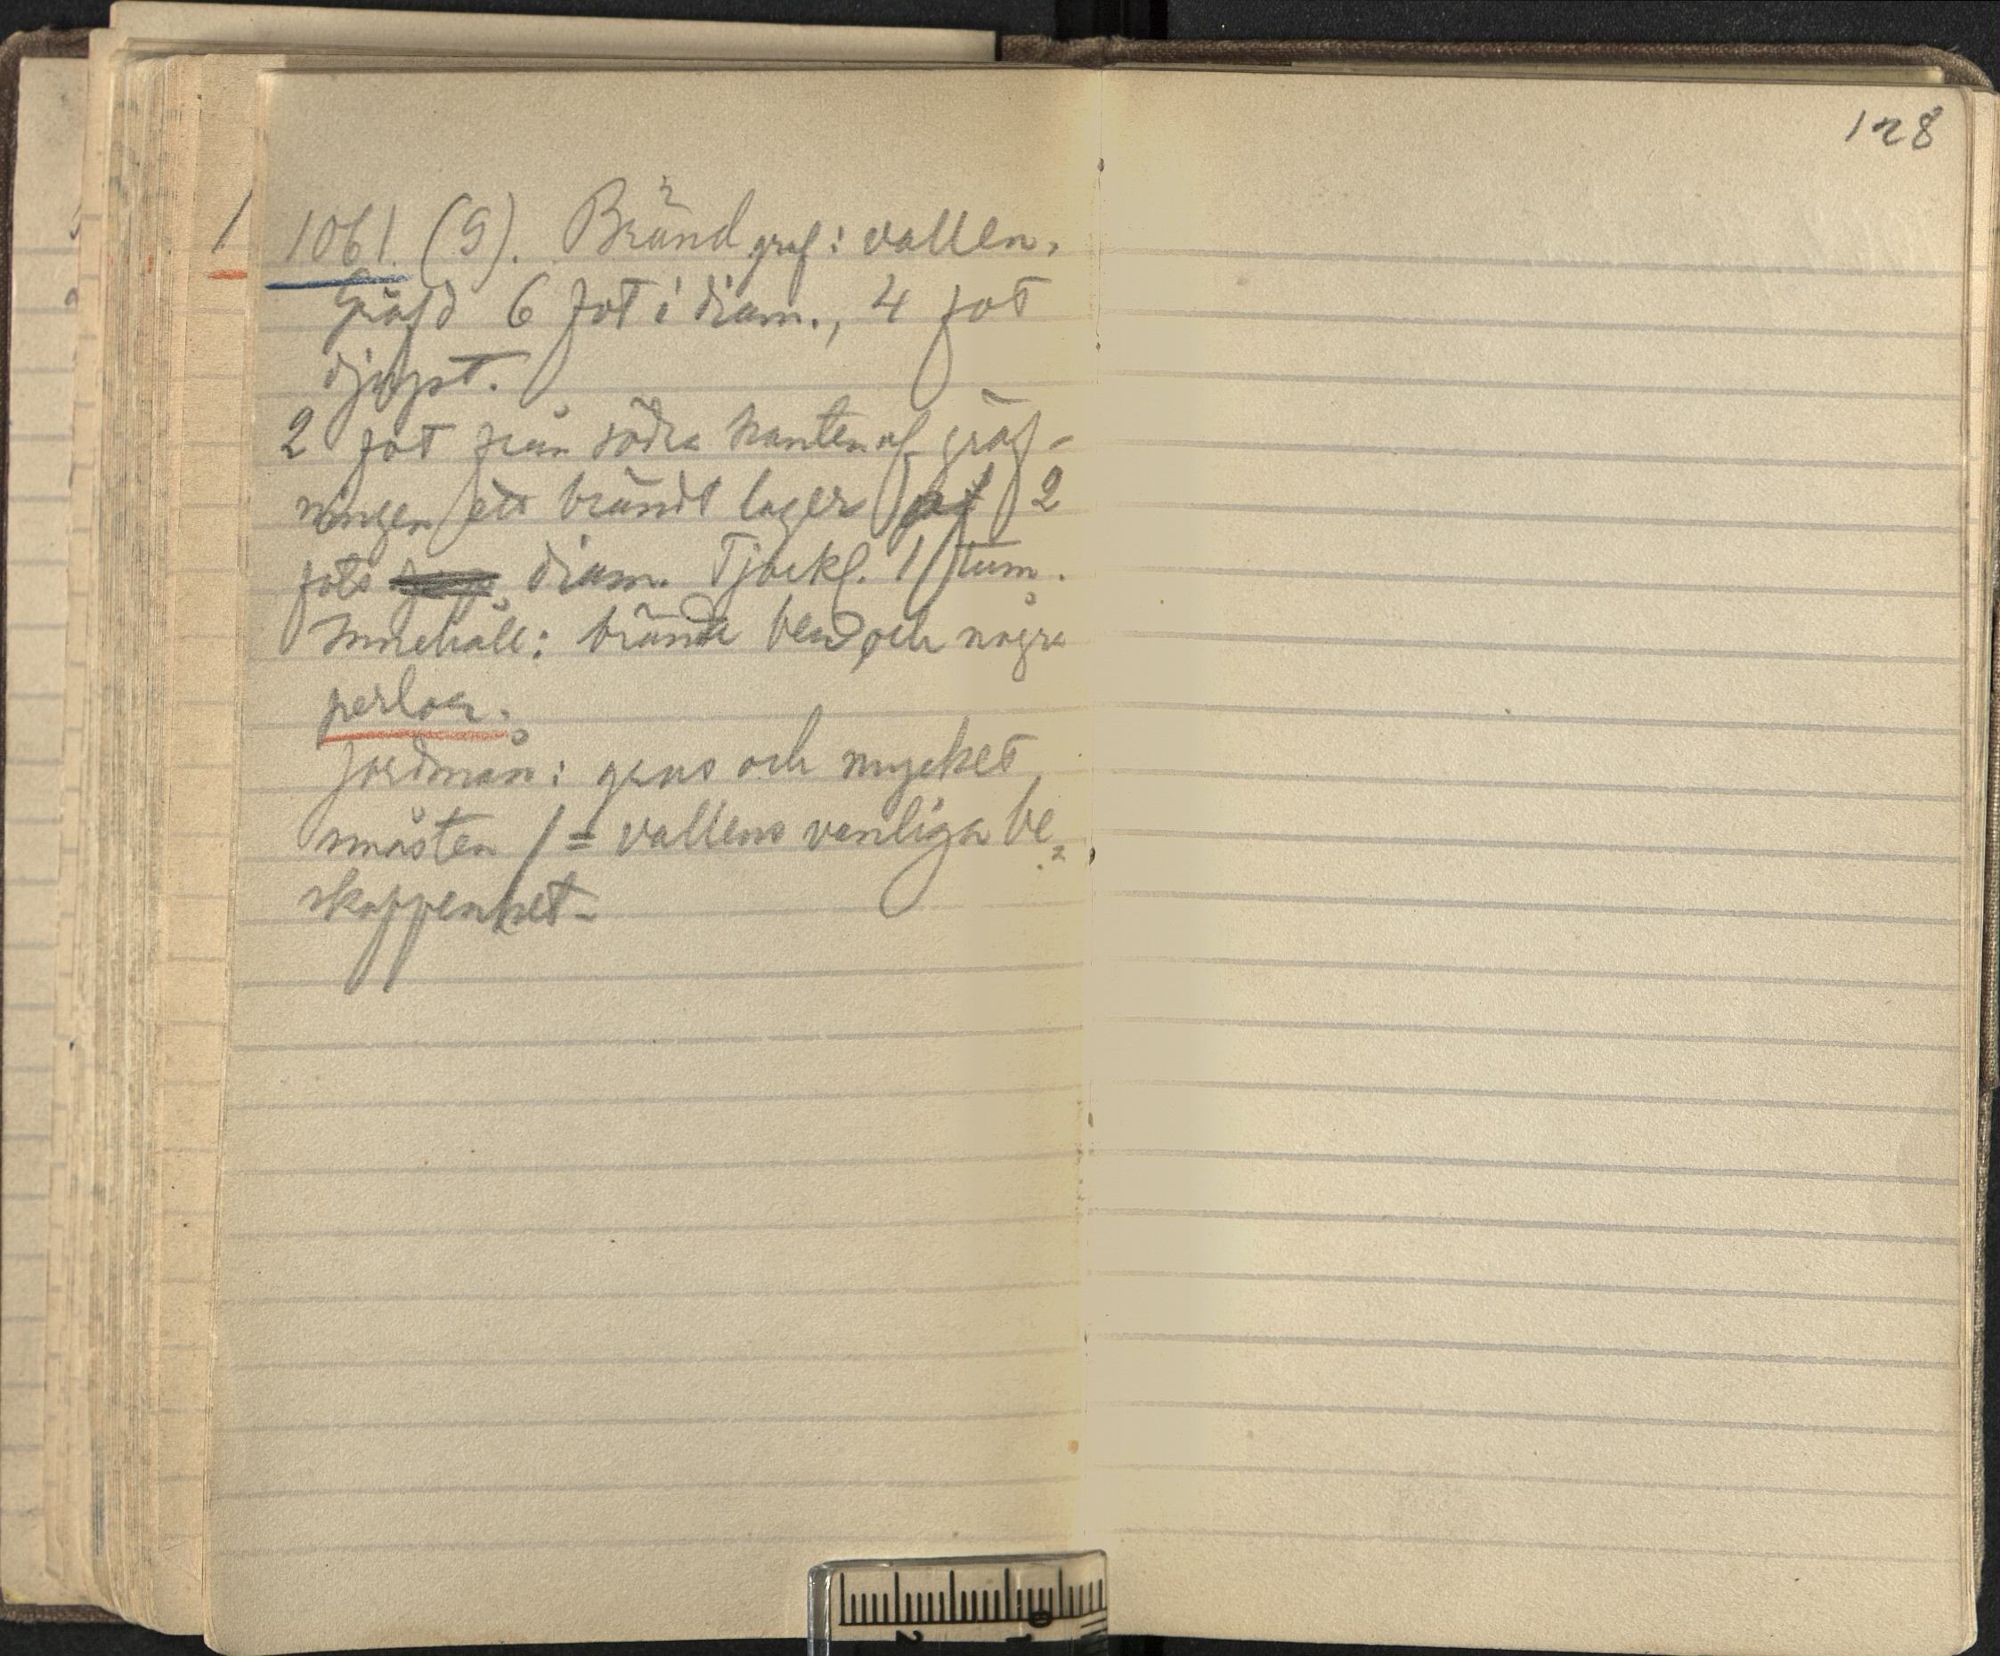 1061. (9). Bränd graf i vallen.
Gräfd 6 fot i diam., 4 fot
djupt.
2 fot från södra kanten af gräf-
ningen ett brändt lager af 2
fots diam. Tjockl. 1 tum.
Innehåll: brända ben och några
perlor.
Jordmån: grus och mycket
småsten / = vallens vanliga be=
skaffenhet-
128